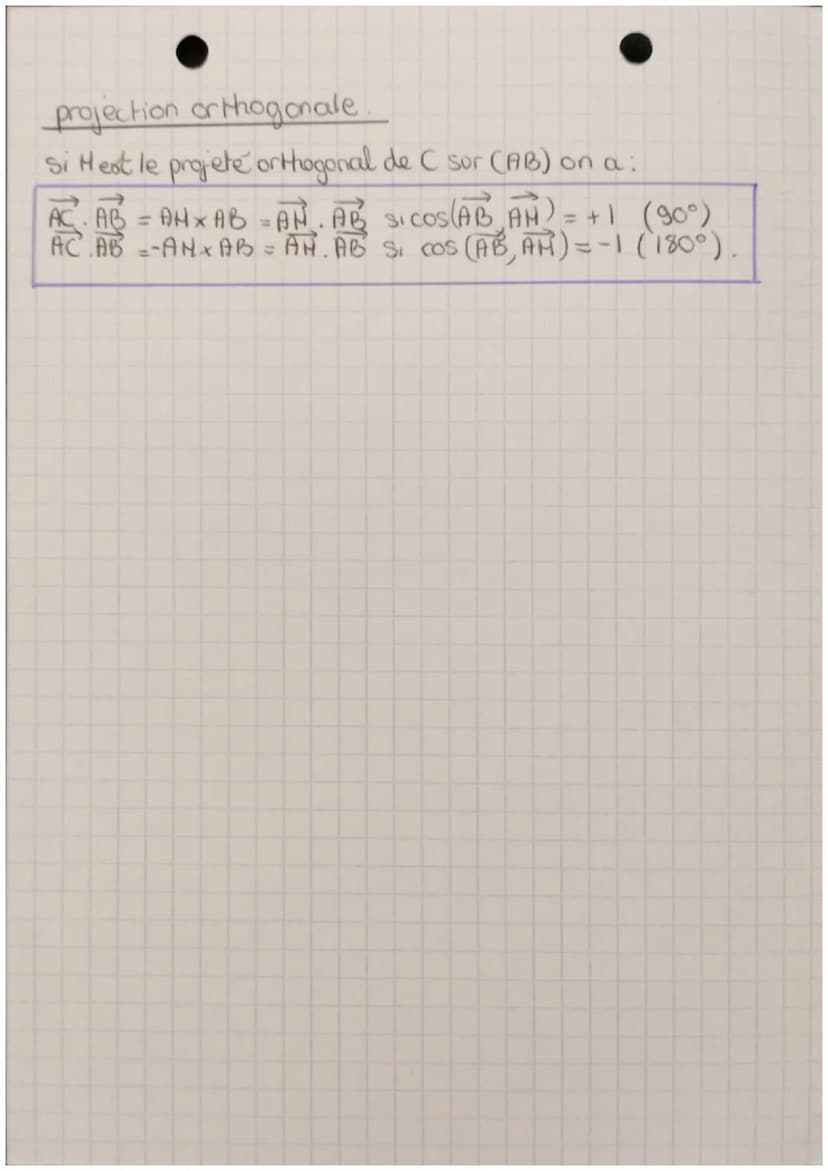 projection orthogonale.
si H est le projeté orthogonal de C sur (AB) on a :
→AC . →AB = AH × AB = →AH . →AB si cos(→AB, →AH) = +1 (90°)
→AC . →AB = -AH × AB = →AH . →AB si cos (→AB, →AH) = -1 (180°).